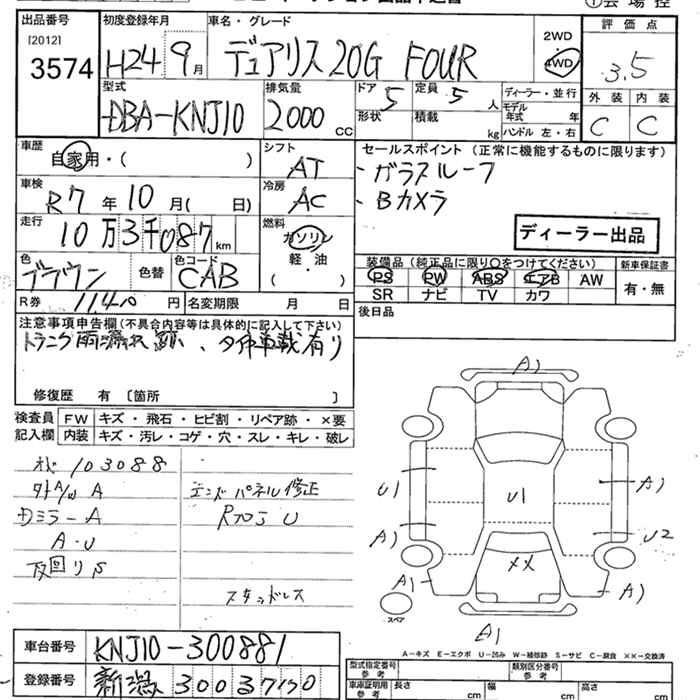 出品番号
[2012]
3574
初度登録年月
H24年 9月
車名・グレード
デュアリス 20G FOUR
2WD
4WD
評価点
3.5
外装 内装
C C
型式
DBA-KNJ10
排気量
2000 cc
ドア 5
形状
定員 5 人
積載 kg
ディーラー・並行
モデル年式 年
ハンドル 左・右
車歴
自家用・( )
シフト
AT
セールスポイント (正常に機能するものに限ります)
・ガラスルーフ
・Bカメラ
車検
R7年10月( 日)
冷房
AC
走行
10万3千087km
燃料
ガソリン
軽・油
( )
ディーラー出品
色
ブラウン
色替
色コード
CAB
装備品 (純正品に限り○をつけてください)
PS PW ABS エアB AW
SR ナビ TV カワ
新車保証書
有・無
R券 11,410円
名変期限 月 日
後日品
注意事項申告欄 (不具合内容等は具体的に記入して下さい)
修復歴 有 [箇所 ]
検査員記入欄
FW キズ・飛石・ヒビ割・リペア跡・×要
内装 キズ・汚レ・コゲ・穴・スレ・キレ・破レ
103088
A
ミラーA
A・U
エンドパネル修正
U
スタッドレス
A1
U1
A1
U1
A1
U2
××
A1
A1
A1
スペア
A－キズ E－エクボ U－凹み W－補修跡 S－サビ C－腐食 ××－交換済
車台番号 KNJ10-300881
登録番号 新潟 300
型式指定番号 参考
類別区分番号 参考
車庫証明用 参考
長さ cm
幅 cm
高さ cm